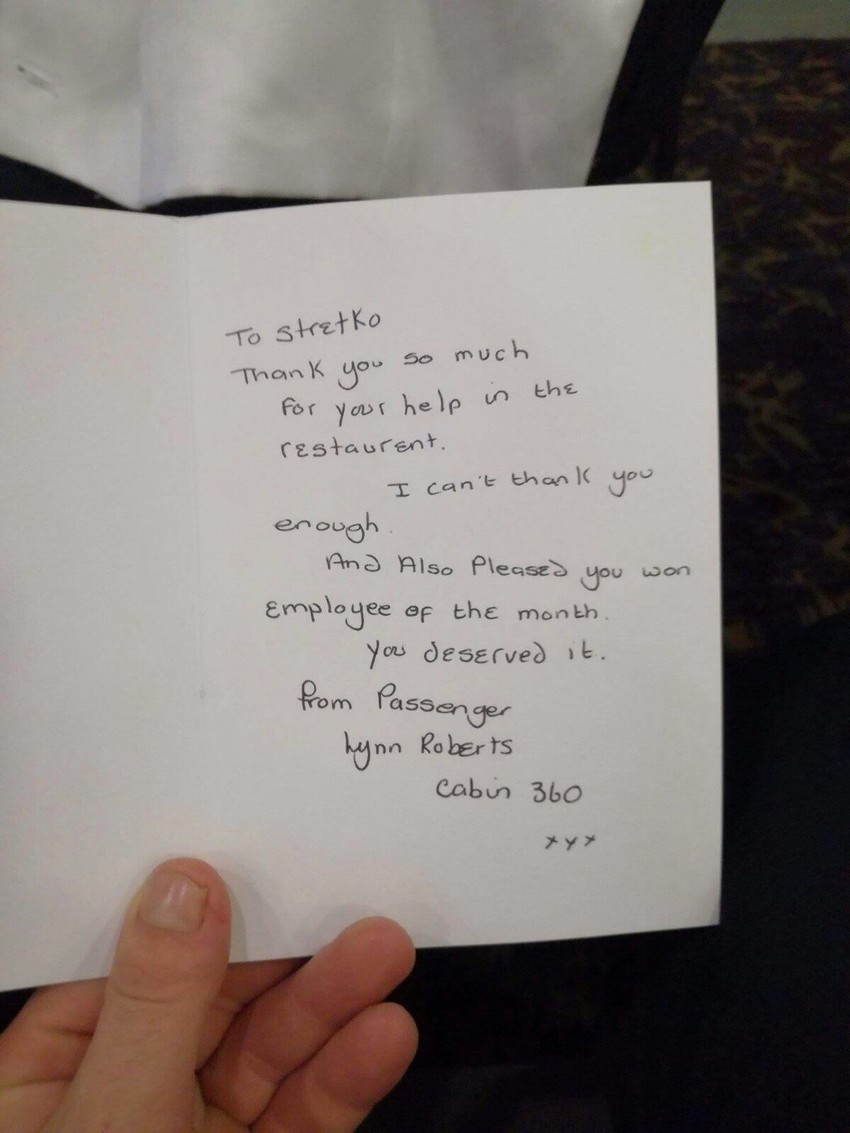 To Stretko
Thank you so much
For your help in the
restaurent.
I can't thank you
enough.
And Also Pleased you won
Employee of the month.
You deserved it.
from Passenger
Lynn Roberts
Cabin 360
xxx